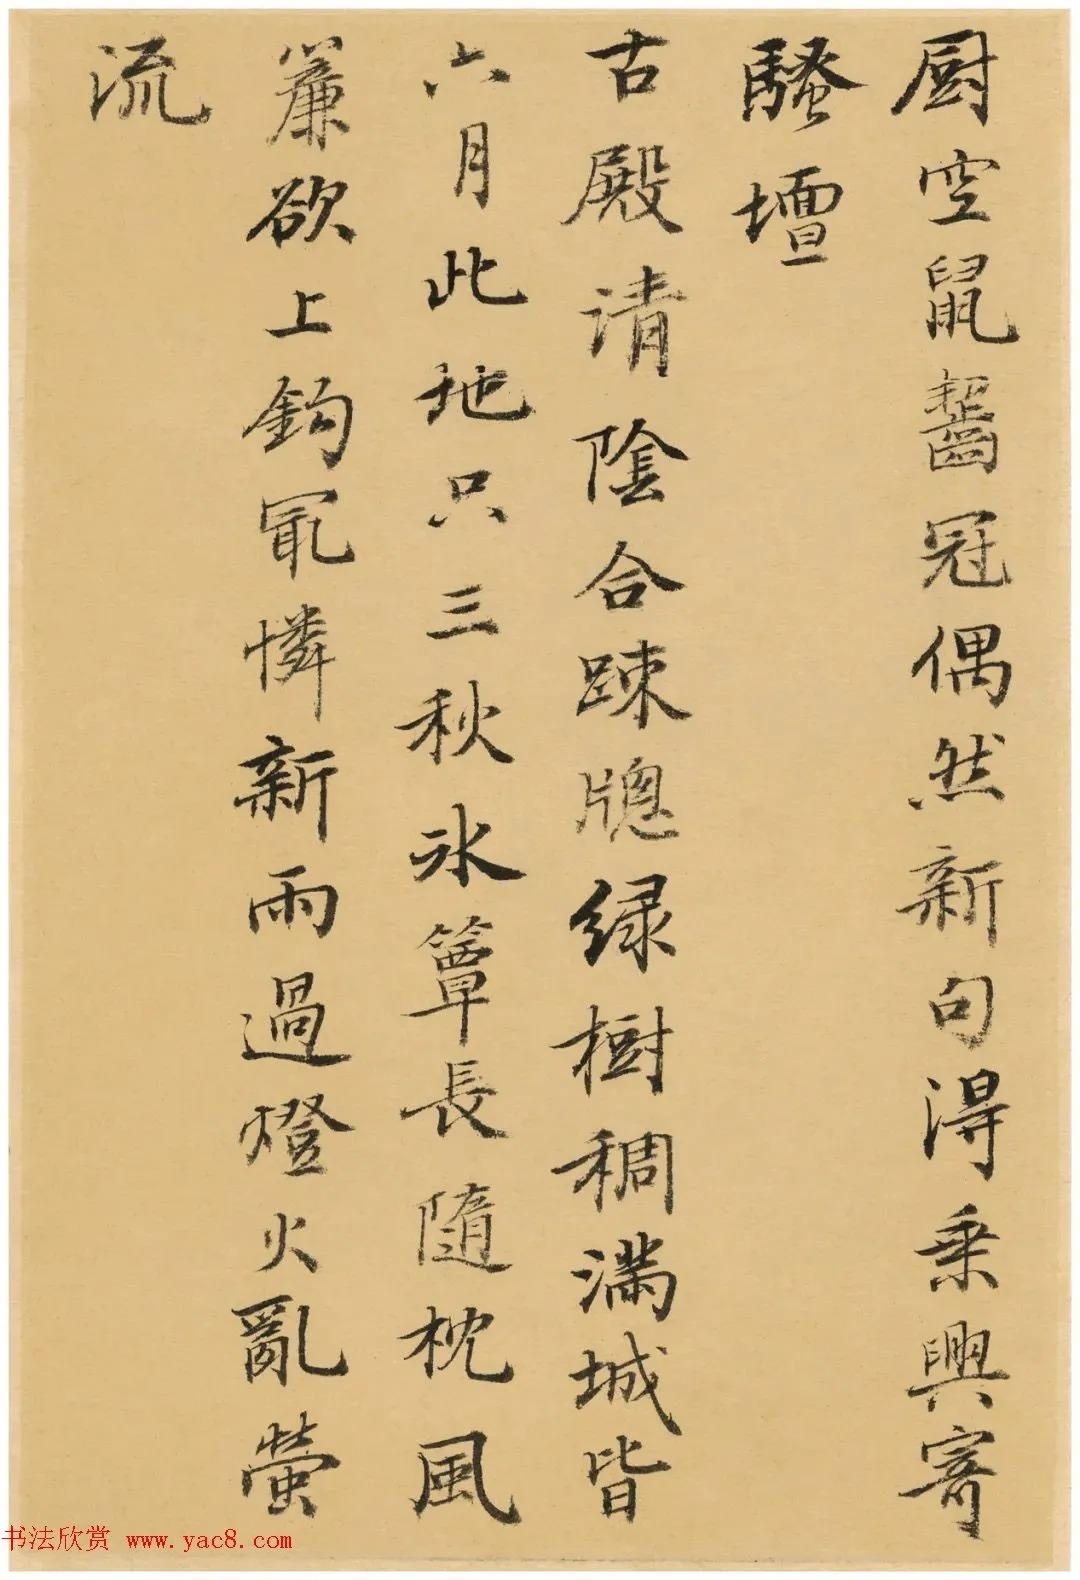 厨空鼠齧冠偶然新句得乗興寄
騷壇
古殿清陰合踈牕緑樹稠滿城皆
六月此地只三秋氷簟長隨枕風
簾欲上鈎冣憐新雨過燈火亂螢
流
书法欣赏 www.yac8.com